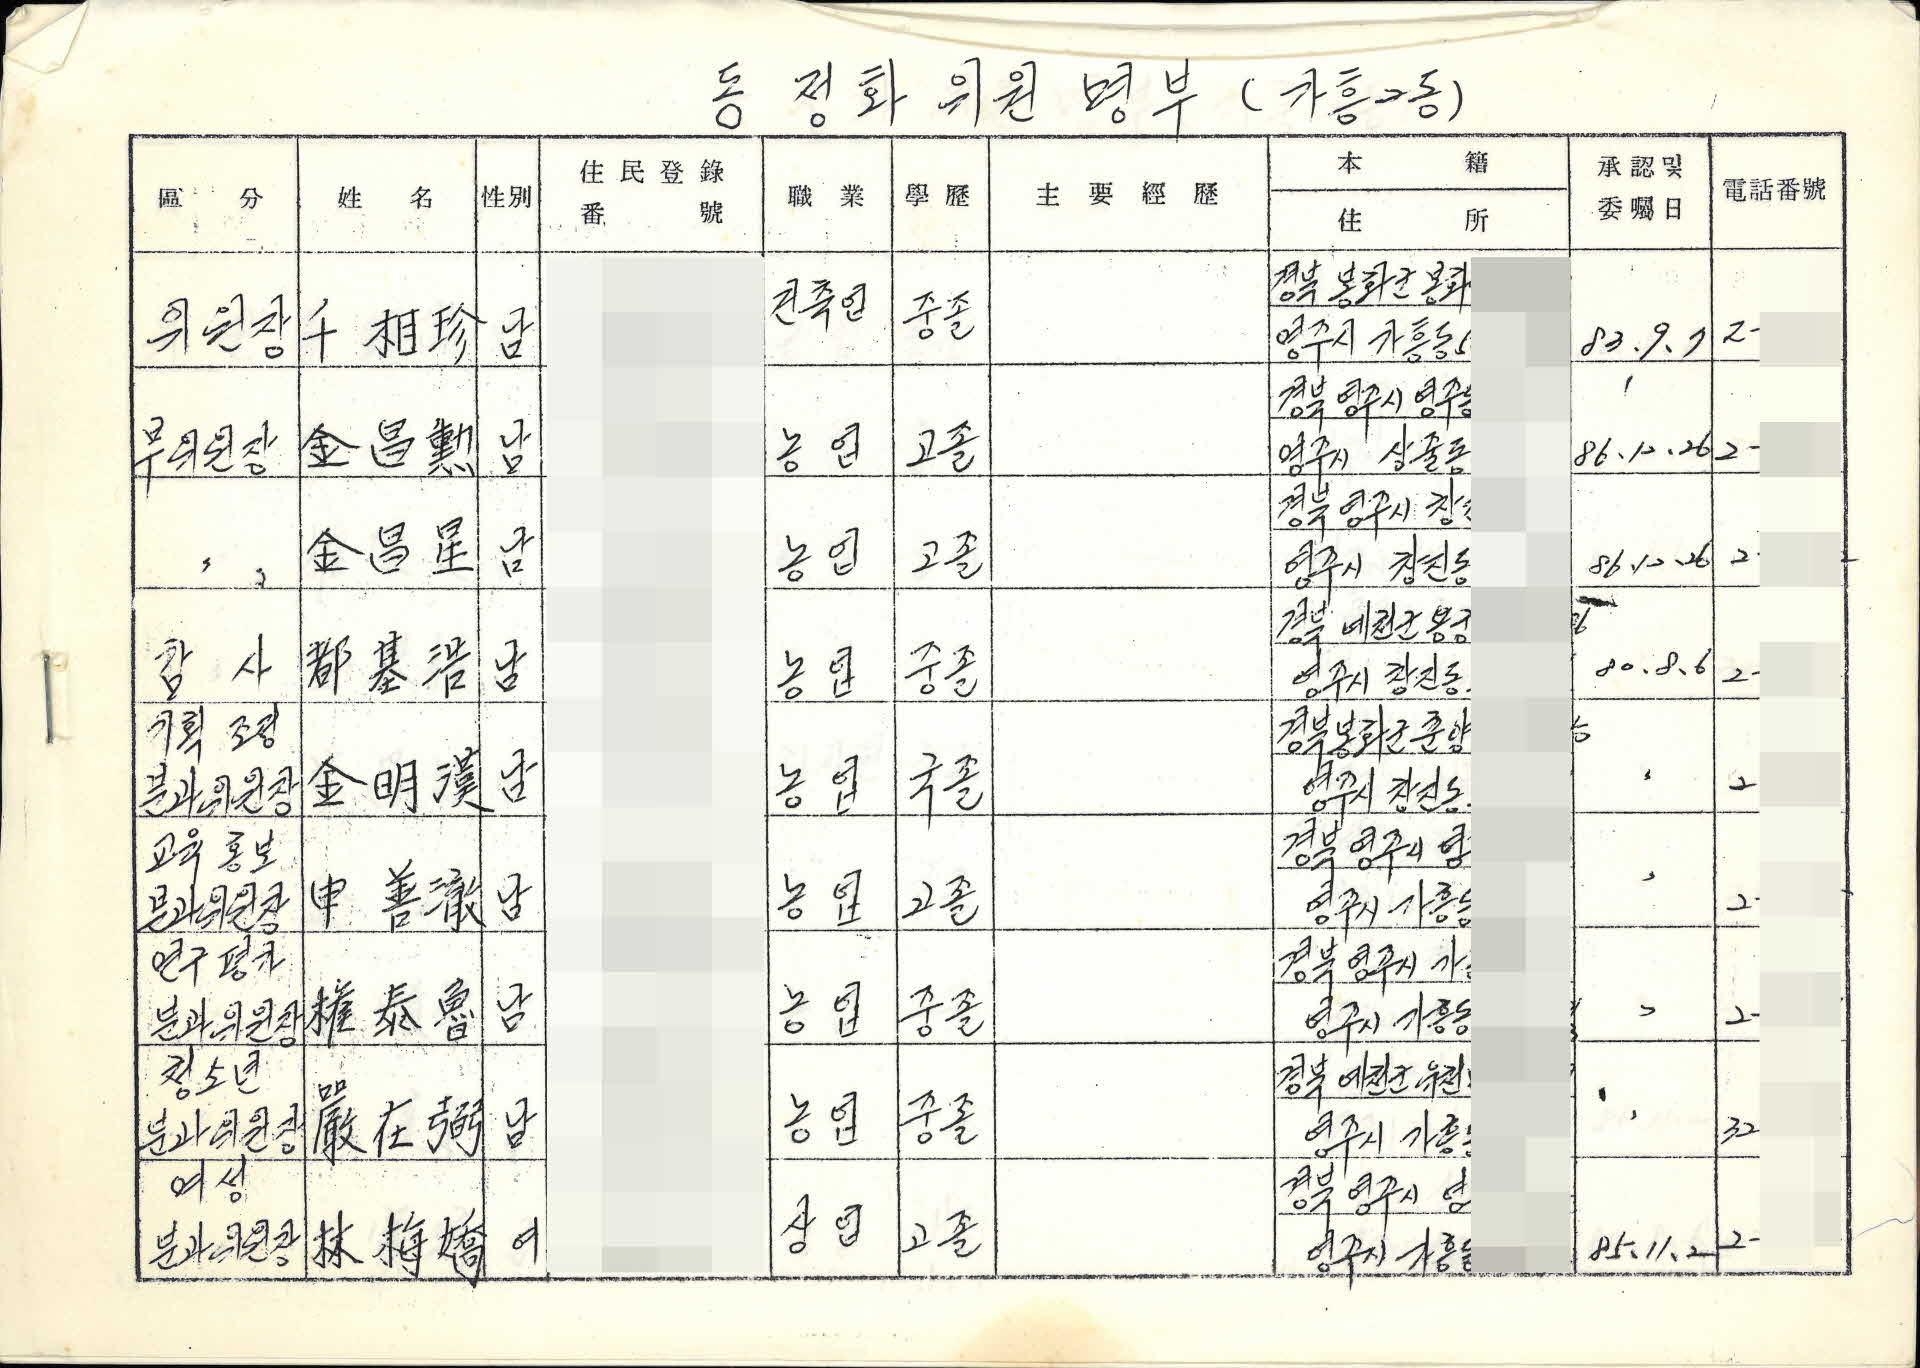 동 정화 위원 명부 (가흥2동)
區 分 姓 名 性別 住民登錄番號 職業 學歷 主要經歷 本籍 住所 承認및委囑日 電話番號
위원장 千相珍 남 건축업 중졸 경북 봉화군 봉화
영주시 가흥동 83.9.7 2-
부위원장 金昌勳 남 농업 고졸 경북 영주시 영주동
영주시 상줄동 86.12.26 2-
〃 金昌星 남 농업 고졸 경북 영주시 창진
영주시 창진동 86.12.26 2
감사 都基浩 남 농업 중졸 경북 예천군 용궁
영주시 창진동 80.8.6 2-
기획 조정
분과위원장 金明漢 남 농업 국졸 경북 봉화군 춘양
영주시 창진동 〃 2
교육 홍보
분과위원장 申善澈 남 농업 고졸 경북 영주시 영
영주시 가흥동 〃 2-
연구 평가
분과위원장 權泰魯 남 농업 중졸 경북 영주시 가
영주시 가흥동 〃 2-
청소년
분과위원장 嚴在弼 남 농업 중졸 경북 예천군 유천
영주시 가흥동 〃 32
여성
분과위원장 林梅嬌 여 상업 고졸 경북 영주시 영
영주시 가흥동 85.11.2 2-